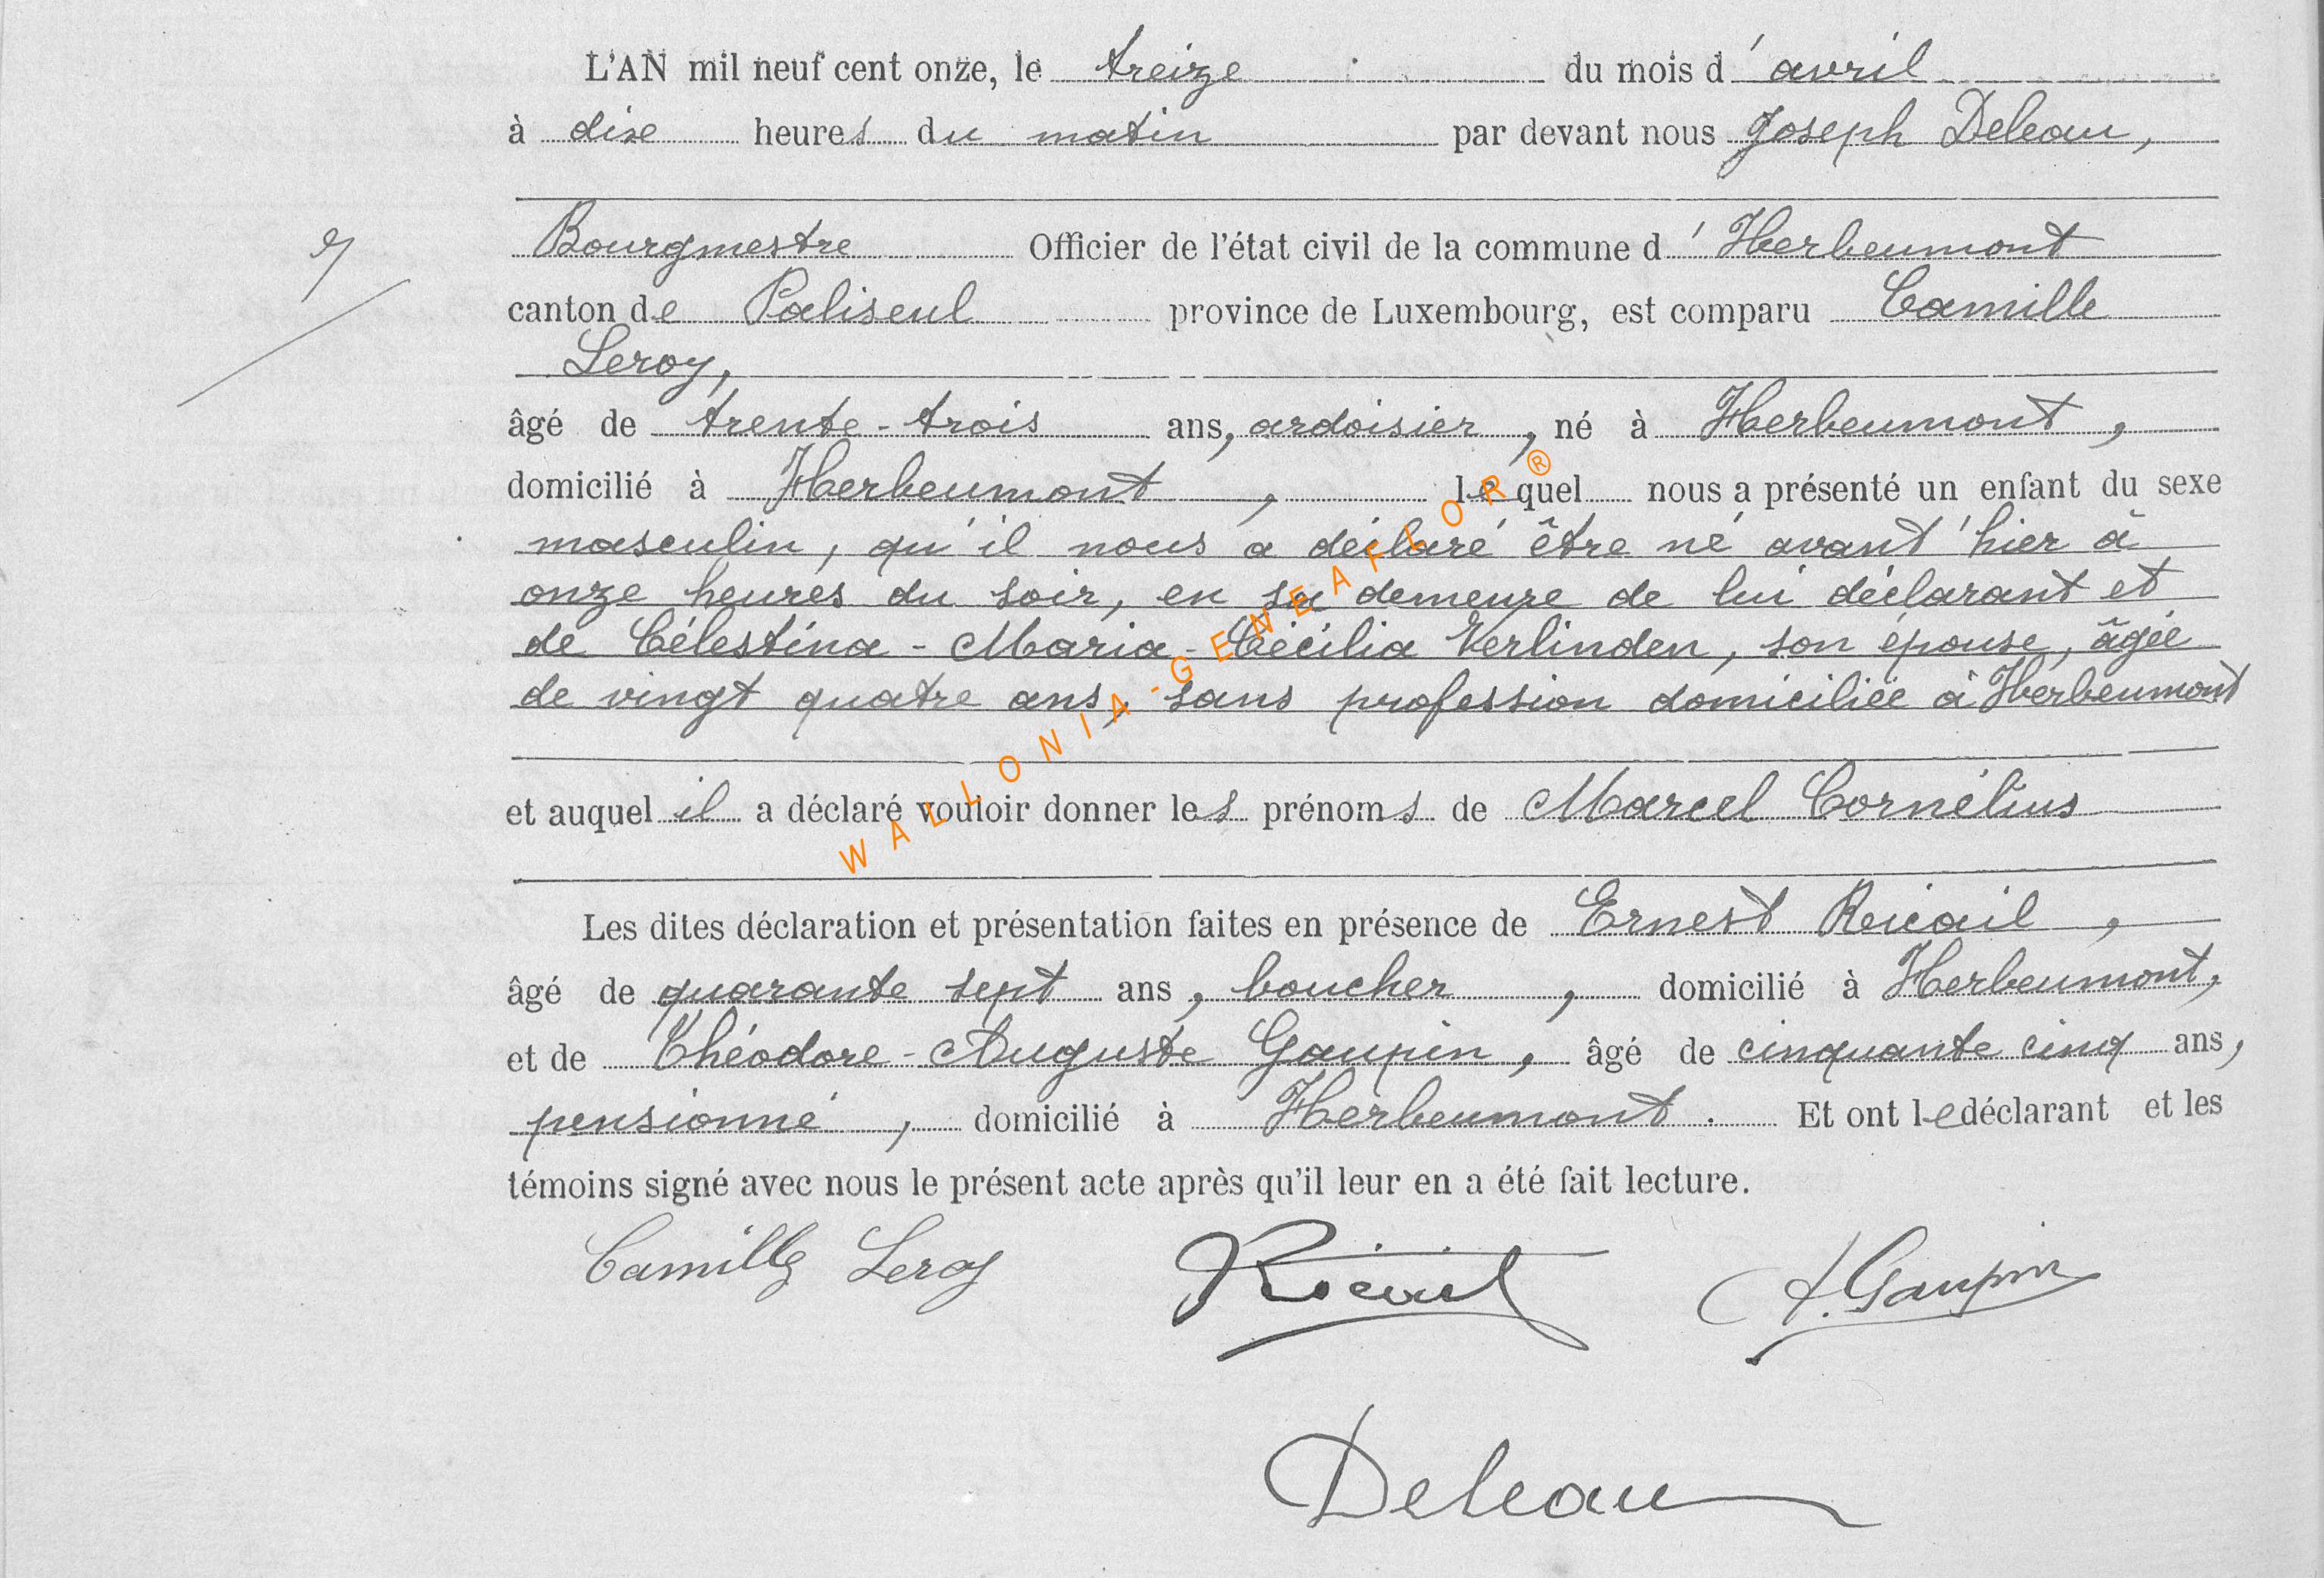 L'AN mil neuf cent onze, le treize du mois d'avril
à dixe heures du matin par devant nous Joseph Deleau,
Bourgmestre Officier de l'état civil de la commune d'Herbeumont
9/
canton de Paliseul province de Luxembourg, est comparu Camille
Leroy,
âgé de trente-trois ans, ardoisier, né à Herbeumont,
domicilié à Herbeumont, lequel nous a présenté un enfant du sexe
masculin, qu'il nous a déclaré être né avant'hier à
onze heures du soir, en sa demeure de lui déclarant et
de Célestina-Maria-Cécilia Verlinden, son épouse, âgée
de vingt quatre ans, sans profession domiciliée à Herbeumont
et auquel il a déclaré vouloir donner les prénoms de Marcel Cornélius
WALLONIA-GENEAFLOR®
Les dites déclaration et présentation faites en présence de Ernest Ricail,
âgé de quarante sept ans, boucher, domicilié à Herbeumont,
et de Théodore-Auguste Gaupin, âgé de cinquante cinq ans,
pensionné, domicilié à Herbeumont. Et ont le déclarant et les
témoins signé avec nous le présent acte après qu'il leur en a été fait lecture.
Camille Leroy Ricail A. Gaupin
Deleau